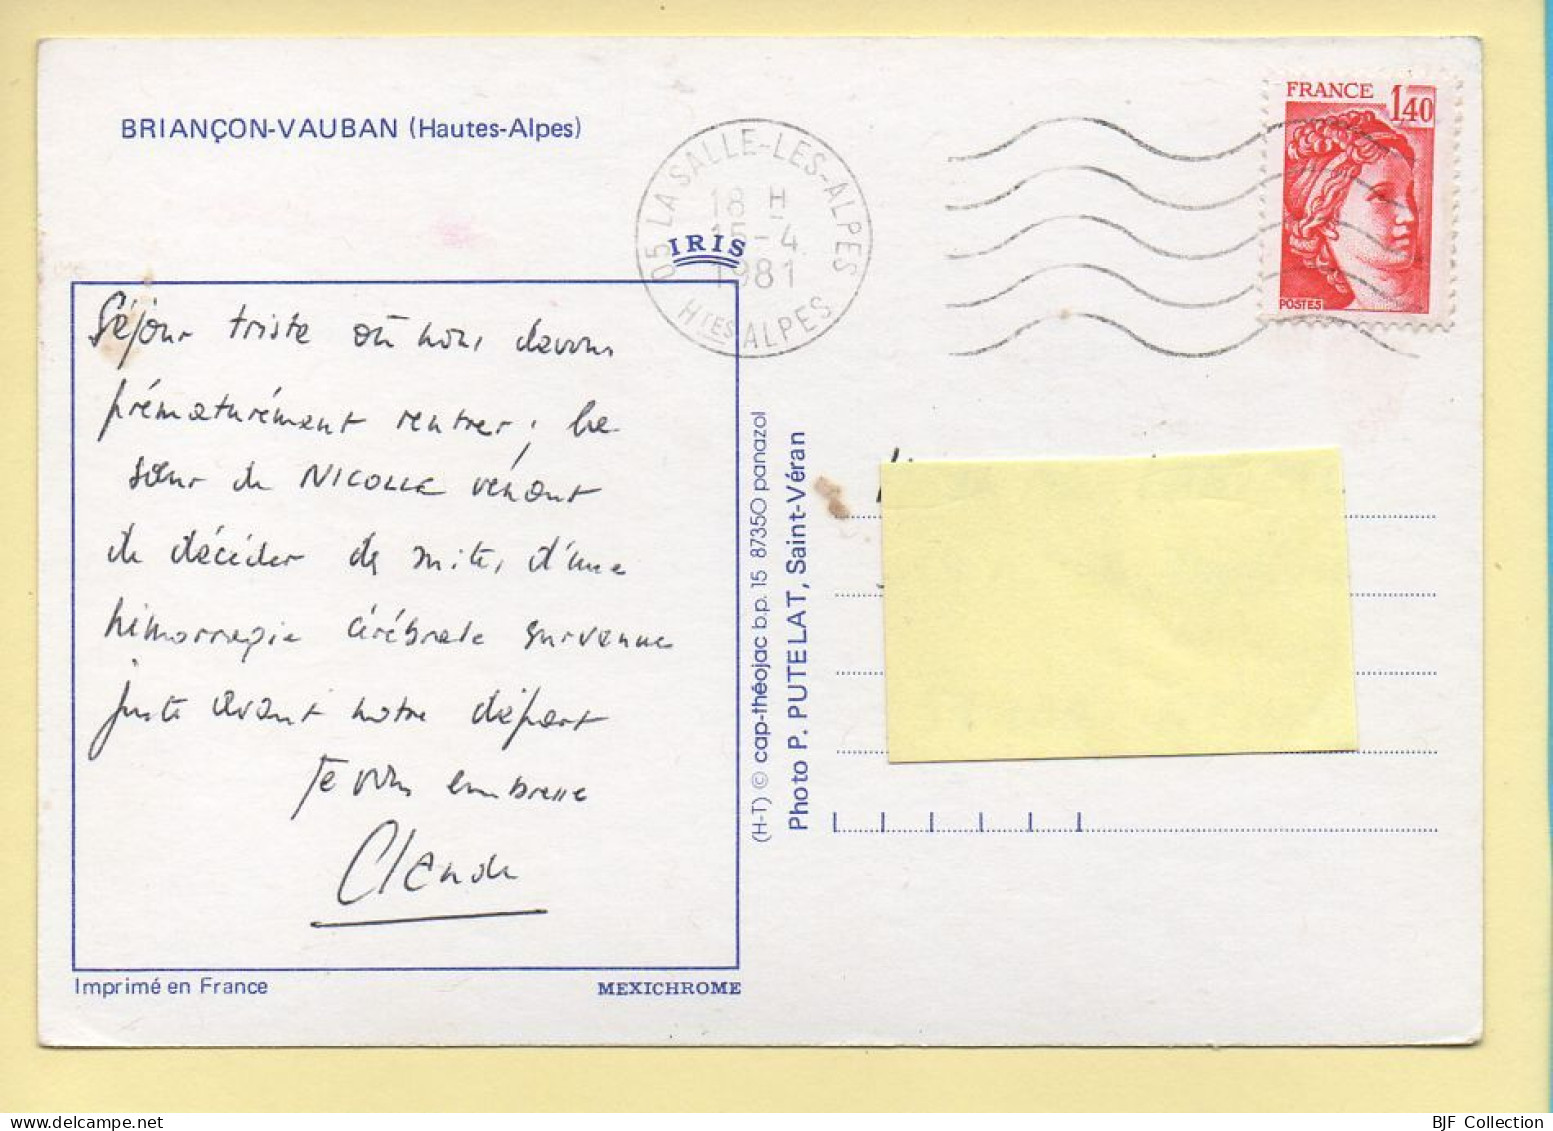 BRIANÇON-VAUBAN (Hautes-Alpes)
05 LA SALLE-LES-ALPES
18 H
15-4
1981
HTES ALPES
FRANCE 1,40
POSTES
IRIS
Séjour triste où nous devons
prématurément rentrer ; la
sœur de NICOLLE vénant
de décéder des suites d'une
hémorragie cérébrale survenue
juste avant notre départ
Je vous embrasse
Claude
(H-T) © cap-théojac b.p. 15 87350 panazol
Photo P. PUTELAT, Saint-Véran
Imprimé en France
MEXICHROME
BJF Collection